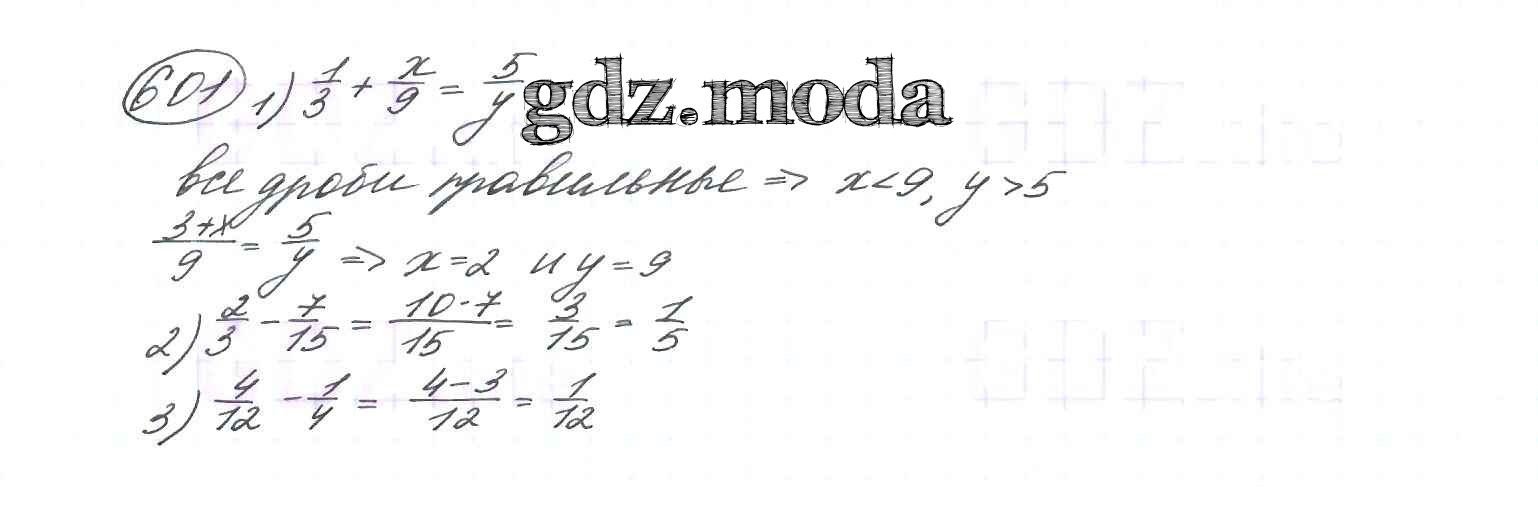 601 1) 1/3 + x/9 = 5/y gdz.moda
все дроби правильные => x<9, y>5
3+x/9 = 5/y => x=2 и y=9
2) 2/3 - 7/15 = 10-7/15 = 3/15 = 1/5
3) 4/12 - 1/4 = 4-3/12 = 1/12